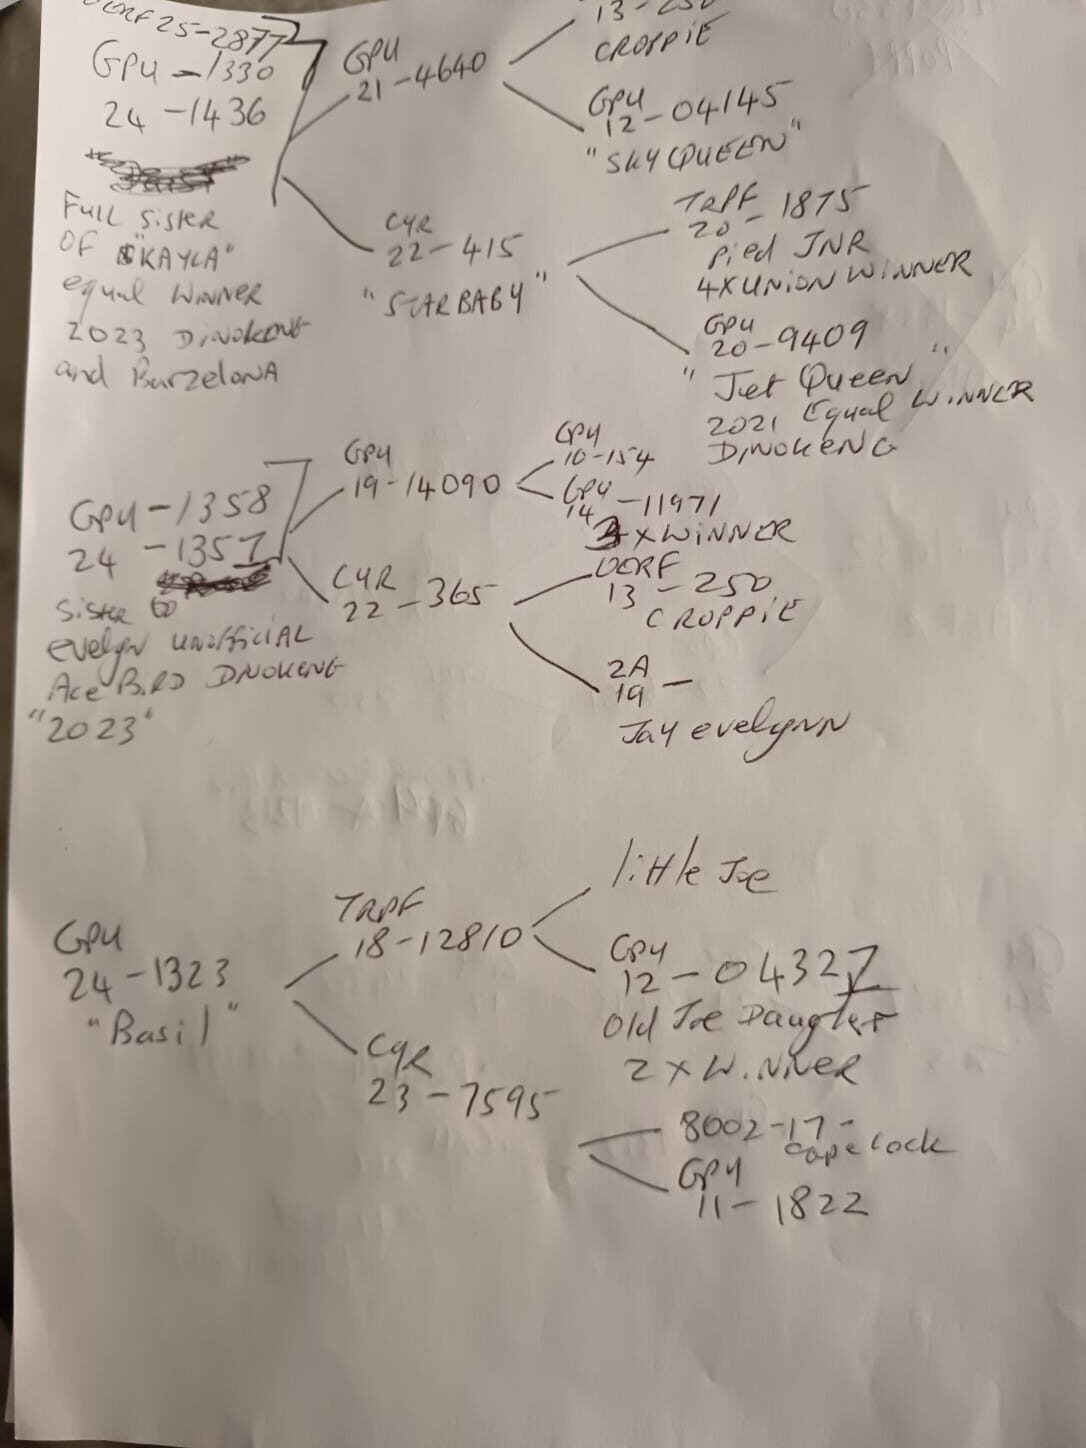 25-2877
GPU -1330
24 -1436
Full sister
OF "KAYLA"
equal WINNER
2023 DINOKENG
and Barzelona
GPU
21-4640
13-250
CROPPIE
GPU
12-04145
"SKYQUEEN"
CYR
22-415
"STARBABY"
TRPF
20-1875
Pied JNR
4XUNION WINNER
GPU
20-9409
"Jet Queen"
2021 Equal WINNER
DINOKENG
GPU-1358
24 -1357
Sister to
evelyn UNofficiAL
Ace BIRD DNOKENG
"2023"
GPU
19-14090
GPU
10-154
GPU
14-11971
XWINNER
CYR
22-365
OERF
13-250
CROPPIE
2A
19 -
Jay evelynn
GPU
24-1323
"Basil"
TRPF
18-12810
little Joe
GPU
12-04327
Old Joe Daughter
2XWINNER
CYR
23-7595
8002-17-
cape cock
GPU
11-1822